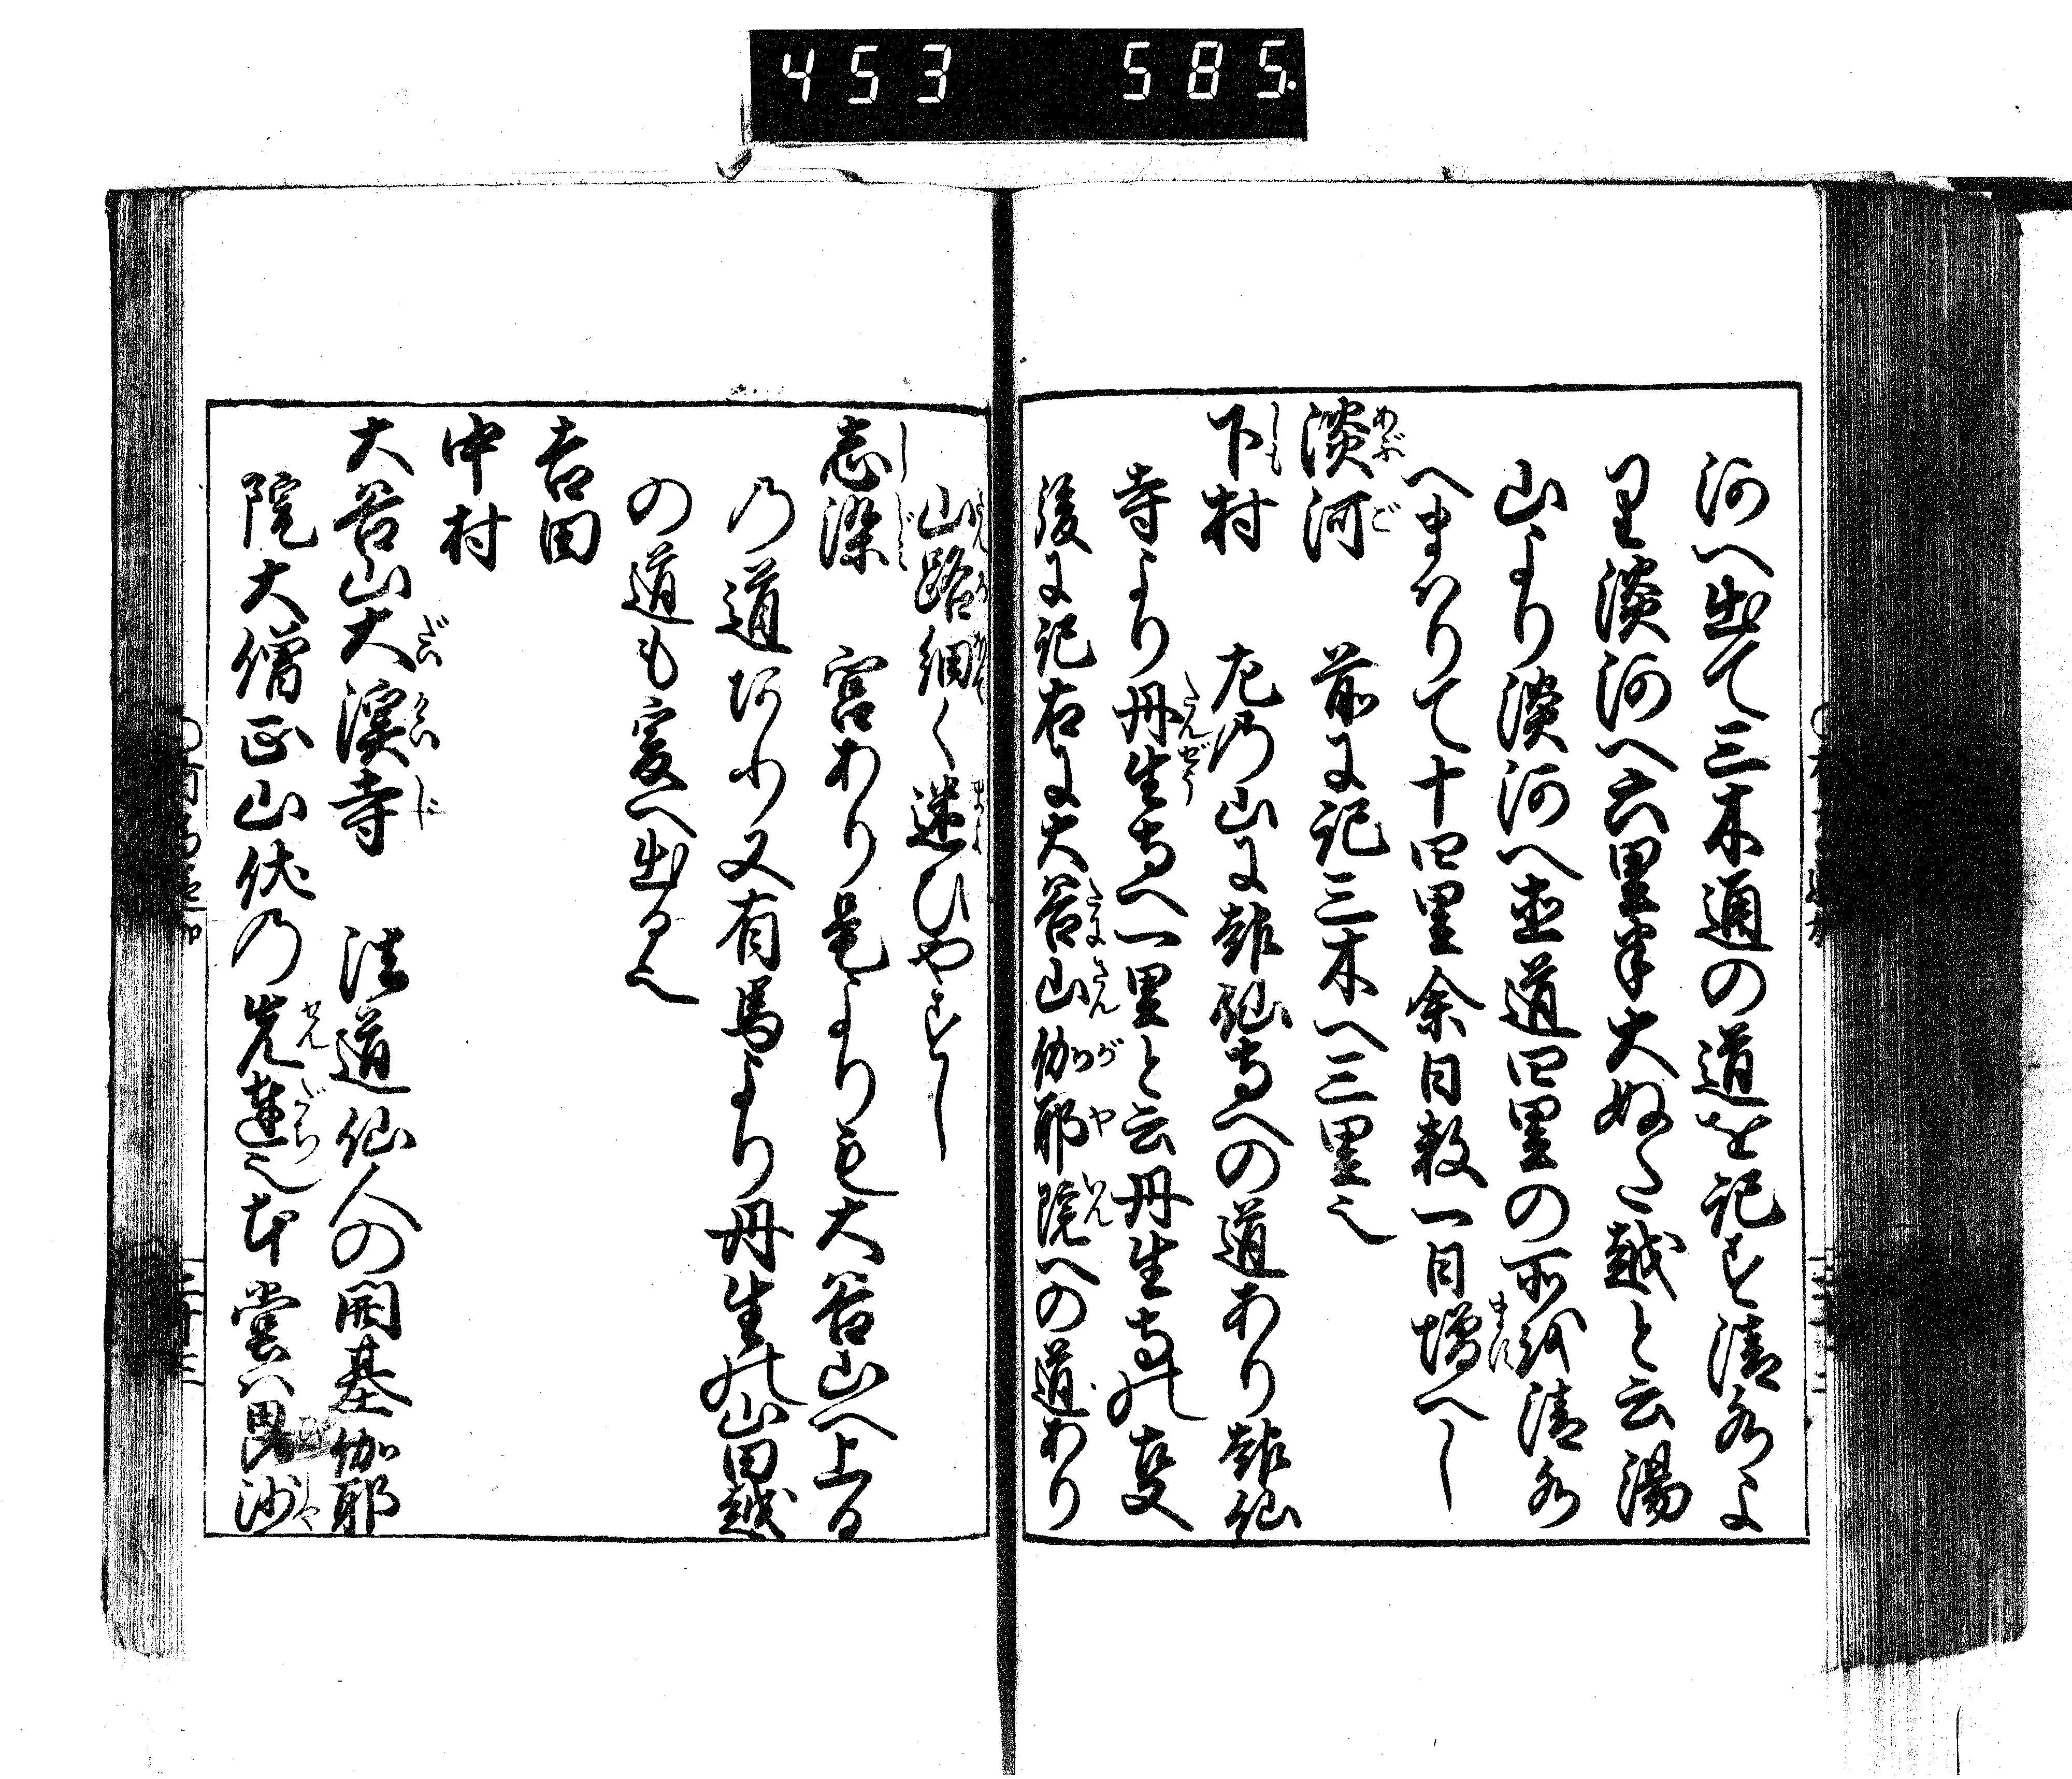 453 585.
河へ出て三木通の道を記す清水よ
り淡河へ六里半大ぬた越と云湯
山より淡河へ直道四里の所を清水
へまはりて十四里余日数一日増へし
淡河 前に記三木へ三里也
下村 左乃山に鋒仙寺への道あり鋒仙
寺より丹生寺へ一里と云丹生寺の変
後に記右に大谷山伽耶院への道あり
山路細く迷ひやすし
志染 宮あり是よりも大谷山へ上る
乃道あり又有馬より丹生の山田越
の道も爰へ出る也
吉田
中村
大谷山大渓寺 法道仙人の開基伽耶
院大僧正山伏乃先達也本堂ハ毘沙